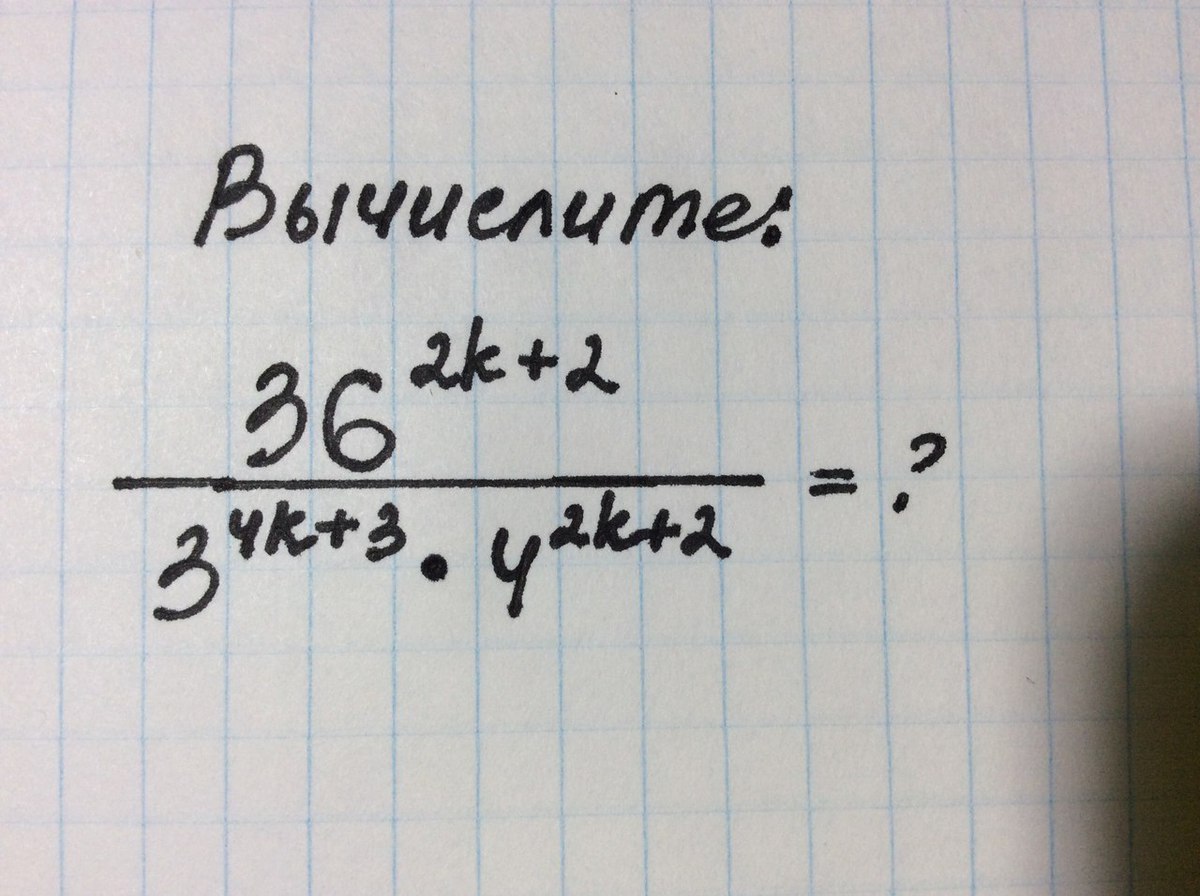 Вычислите:
36^{2k+2}
3^{4k+3} · 4^{2k+2} = ?